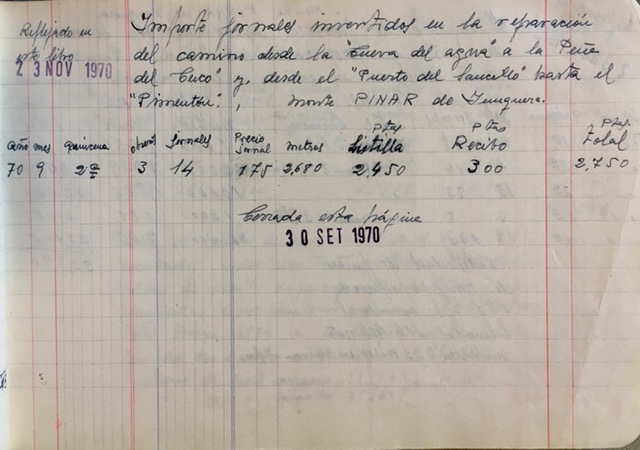 Reflejado en
este libro
2 3 NOV 1970
Importe jornales invertidos en la reparación
del camino desde la "Cueva del agua" a la Peña
del Cuco" y desde el "Puerto del Saucillo" hasta el
"Pimentón", monte PINAR de Yunquera.
año mes quincena obreros Jornales Precio Jornal metros Ptas Listilla Ptas Recibo Ptas. Total
70 9 2ª 3 14 175 2,680 2,450 300 2,750
Cerrada esta página
3 0 SET 1970